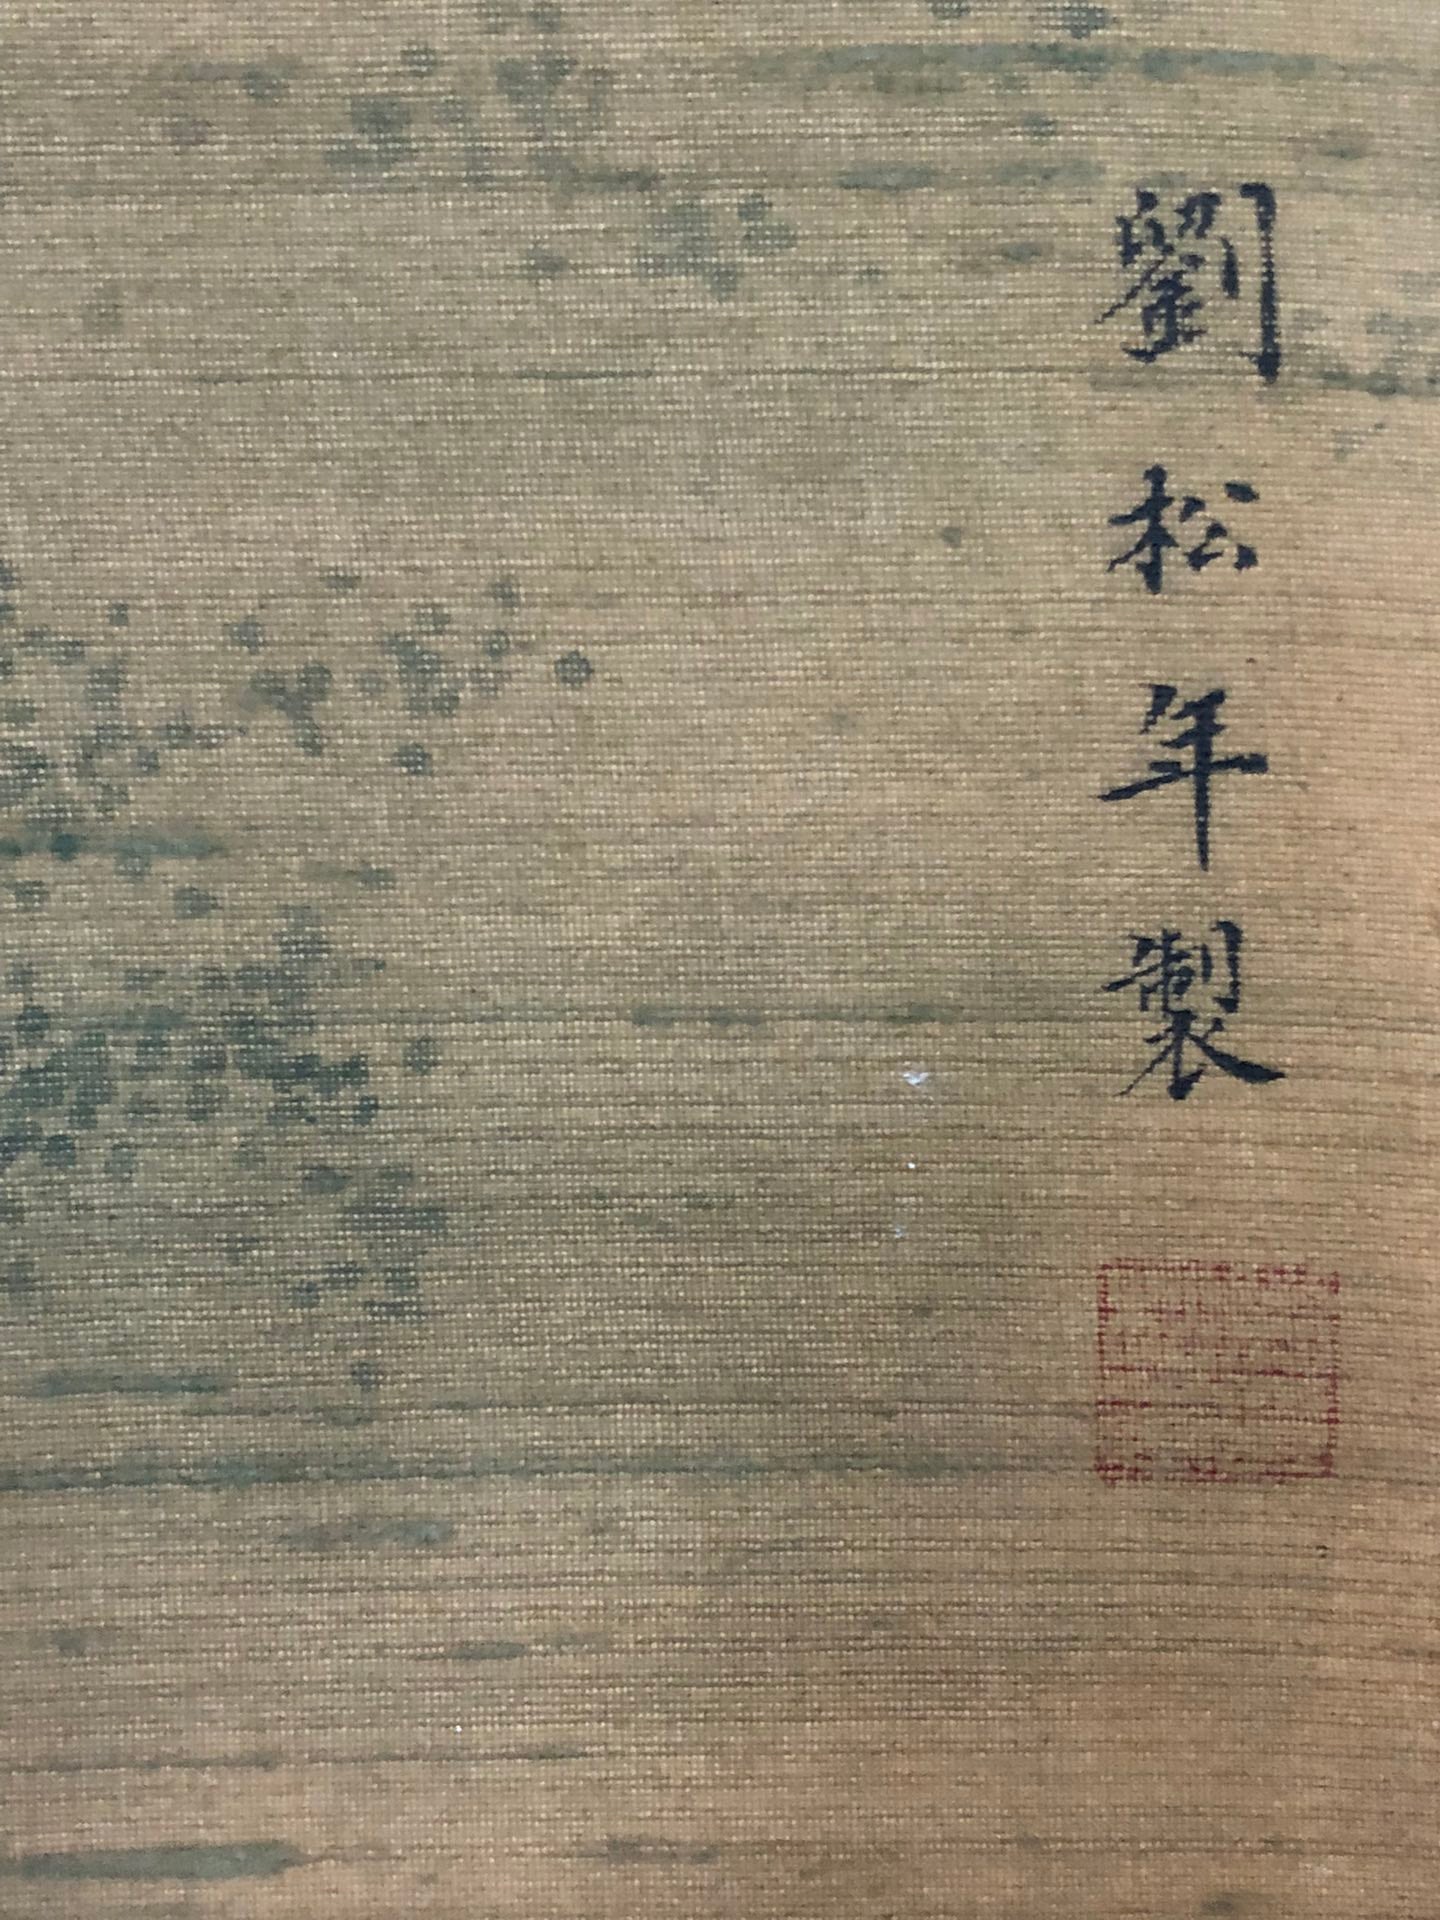 劉松年製